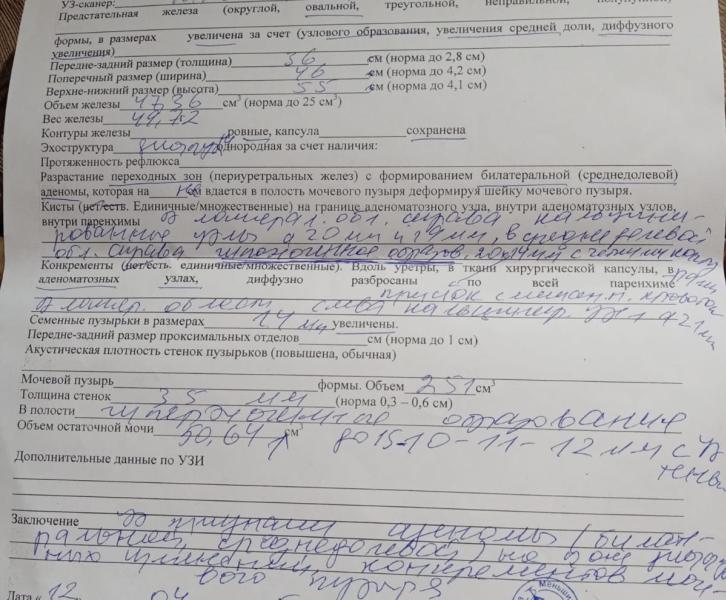 УЗ-сканер:
Предстательная железа (округлой, овальной, треугольной, неправильной,
формы, в размерах увеличена за счет (узлового образования, увеличения средней доли, диффузного
увеличения)
Передне-задний размер (толщина) 36 см (норма до 2,8 см)
Поперечный размер (ширина) 46 см (норма до 4,2 см)
Верхне-нижний размер (высота) 55 см (норма до 4,1 см)
Объем железы 47,36 см³ (норма до 25 см³)
Вес железы 49,72
Контуры железы ровные, капсула сохранена
Эхоструктура однородная за счет наличия:
Протяженность рефлюкса
Разрастание переходных зон (периуретральных желез) с формированием билатеральной (среднедолевой)
аденомы, которая на см вдается в полость мочевого пузыря деформируя шейку мочевого пузыря.
Кисты (нет/есть. Единичные/множественные) на границе аденоматозного узла, внутри аденоматозных узлов,
внутри паренхимы В латерал. обл. справа кальцини-
рованные узлы д 20 мм и 9 мм, в среднедолевой
обл. справа гипоэхогенное образов.
Конкременты (нет/есть. единичные/множественные). Вдоль уретры, в ткани хирургической капсулы, в
аденоматозных узлах, диффузно разбросаны по всей паренхиме
В латер. области слева кальцинир. д 21 мм
Семенные пузырьки в размерах 14 мм увеличены.
Передне-задний размер проксимальных отделов см (норма до 1 см)
Акустическая плотность стенок пузырьков (повышена, обычная)
Мочевой пузырь формы. Объем 251 см³
Толщина стенок 3,5 мм (норма 0,3 – 0,6 см)
В полости гиперэхогенные образования
Объем остаточной мочи 50,64 см³ до 15-10-11-12 мм с
Дополнительные данные по УЗИ
Заключение признаки аденомы (билате-
ральной, среднедолевой) на фоне диффуз-
ных изменений, конкрементов моче-
вого пузыря
Дата « 12 04